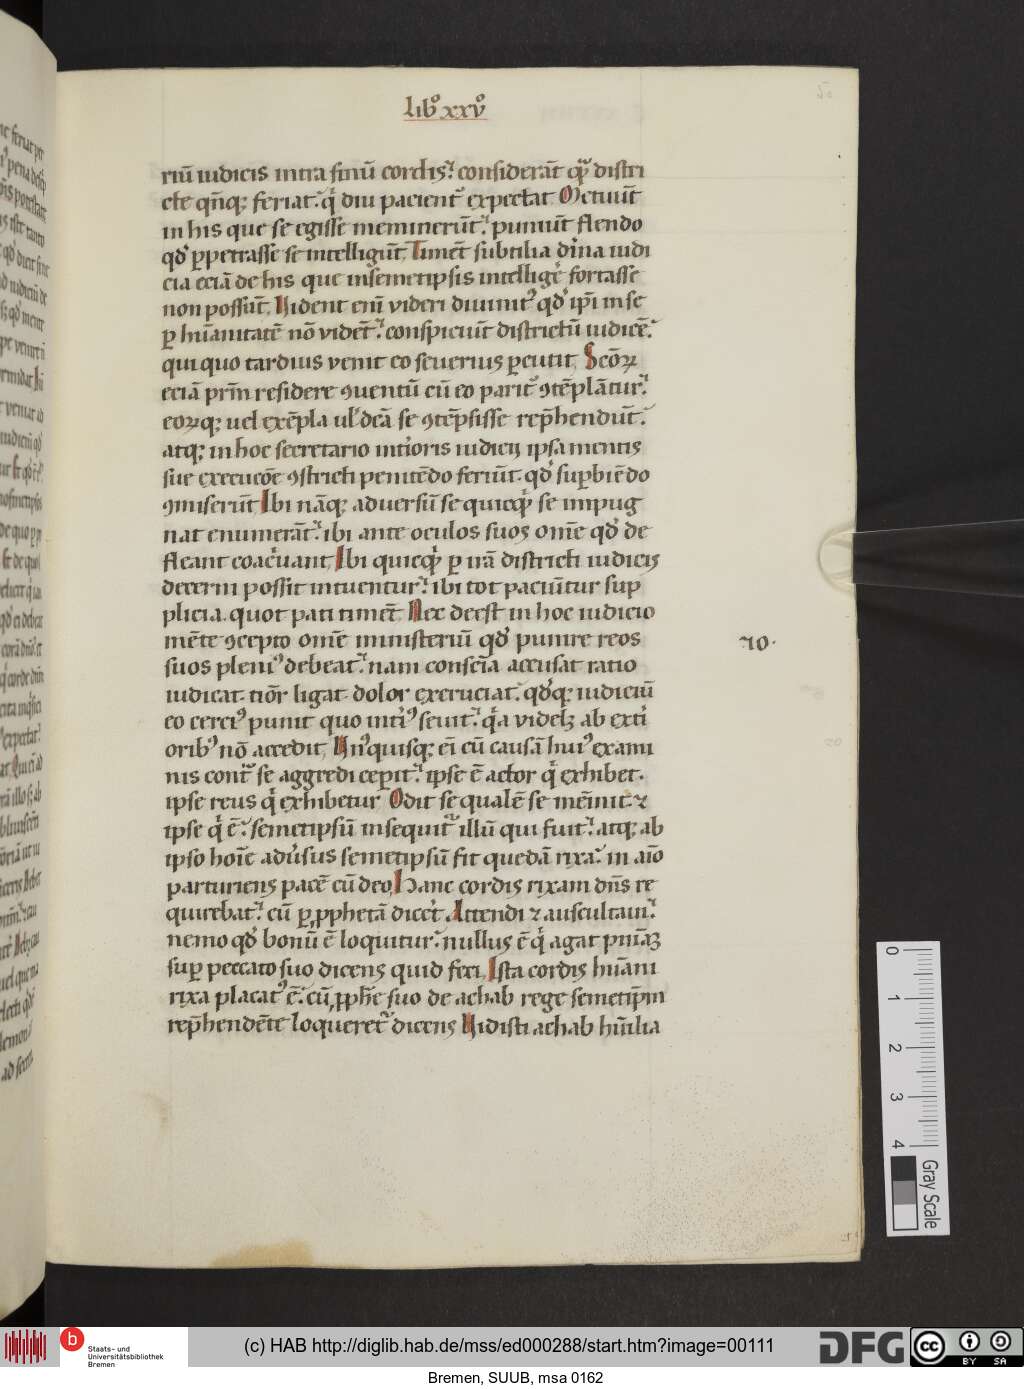 Libº xxvº
riū iudicis intra sinū cordis. considerāt qᷓ distri
cte qn̄qꝫ feriat. qͥ diu pacient᷑ expectat Metuūt
in his que se egisse meminerūt. puniūt flendo
qd̕ ꝑpetrasse se intelligūt, Timēt subtilia diīna iudi
cia eciā de his que insemetipsis intellige᷑ fortasse
non possūt, Uident enī videri diuinit᷑ qd̕ ip̄i in se
ꝑ hūanitatē nō vidēt. conspiciūt districtū iudicē.
qui quo tardius venit eo seuerius ꝑcutit, Scōꝝ
eciā pr̄m residere ꝯuentū cū eo parit᷑ ꝯtēplāntur.
eoꝝqꝫ uel exēpla ul̕ dc̄a se ꝯtēpsisse rep̄hendūt.
atqꝫ in hoc secretario int̕ioris iudicij ipsa mentis
sue execucōe ꝯstricti penitēdo feriūt. qd̕ suꝑbiēdo
ꝯmiserūt Ibi nāqꝫ aduersū se quicqͥd se impug
nat enumerāt. ibi ante oculos suos om̄e qd̕ de
fleant coac̕uant, Ibi quicqͥd ꝑ irā districti iudicis
decerni possit intuentur. ibi tot paciūtur sup
plicia. quot pati timēt Nec deest in hoc iudicio
mēte ꝯcepto om̄e ministeriū qd̕ punire reos
70.
suos pleni᷒ debeat. nam consciā accusat ratio
iudicat. tiōr ligat. dolor excruciat. qd̕qꝫ iudiciū
eo cerci᷒ punit quo int̕i᷒ seuit. qͥa videlꝫ ab ext̕i
orib᷒ nō accedit, Un᷒quisqꝫ ei cū causā hui᷒ exami
nis cont̕ se aggredi cepit. ipse ē actor qͥ exhibet.
ipse reus qͥ exhibetur Odit se qualē se mēinit. ⁊
ipse qͥ ē. semetipsū insequit᷑ illū qui fuit. atqꝫ ab
ipso hoīe adu̕sus semetipsū fit quedā rixa. in aīo
parturiens pacē cū deo, Hanc cordis rixam dn̄s re
quirebat. cū ꝑ ꝓphetā dice̕t Attendi ⁊ auscultaui.
nemo qd̕ bonū ē loquitur. nullus ē qͥ agat pn̄iaꝫ
suꝑ peccato suo dicens quid feci, Ista cordis hūani
rixa placat᷒ ē. cū ꝓph̄e suo de achab rege semetip̄m
rep̄hendēte loqueret᷑ dicens Uidisti achab hu̅ilia
0
1
2
3
4
Gray Scale
b
Staats- und
Universitätsbibliothek
Bremen
(c) HAB http://diglib.hab.de/mss/ed000288/start.htm?image=00111
DFG
cc
BY
SA
Bremen, SUUB, msa 0162